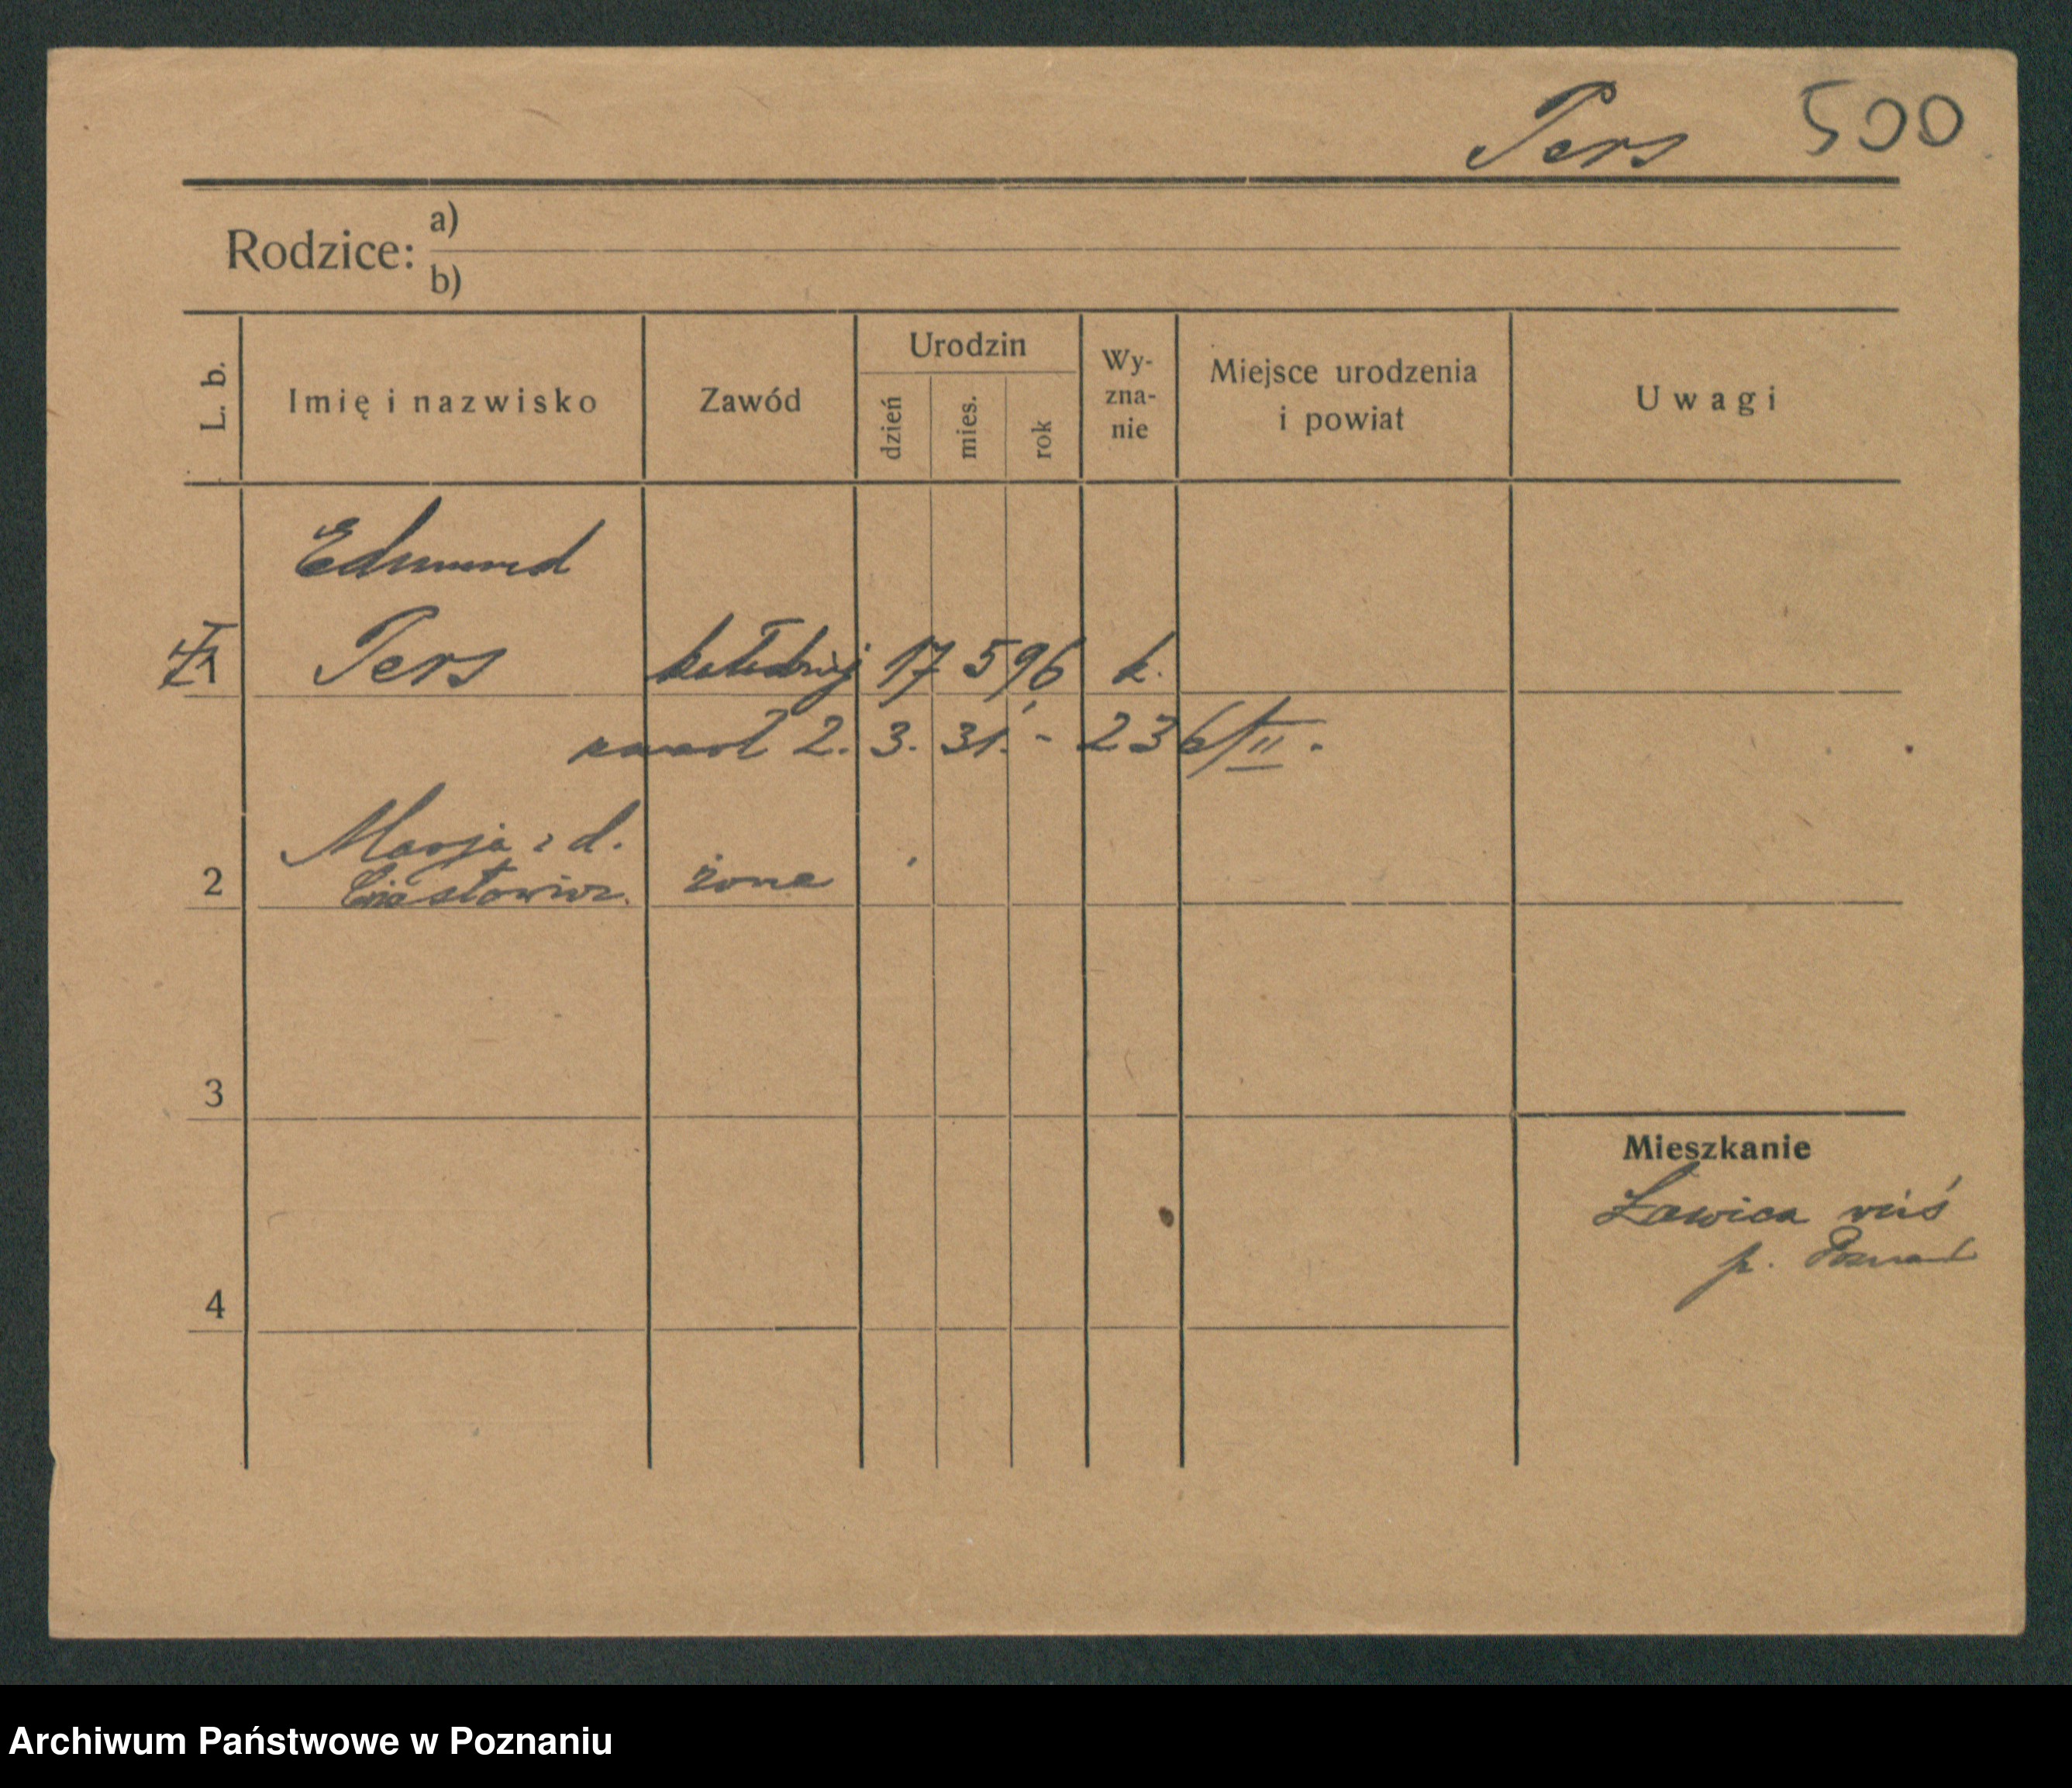 Pers 500
Rodzice: a)
b)
L. b. Imię i nazwisko Zawód Urodzin dzień mies. rok Wy-zna-nie Miejsce urodzenia i powiat Uwagi
Edmund
Pers 17 5 96 k.
2. 3. 31. - 236/II.
Marja z d.
2 żona
3
Mieszkanie
Ławica wieś
p. Poznań
4
Archiwum Państwowe w Poznaniu